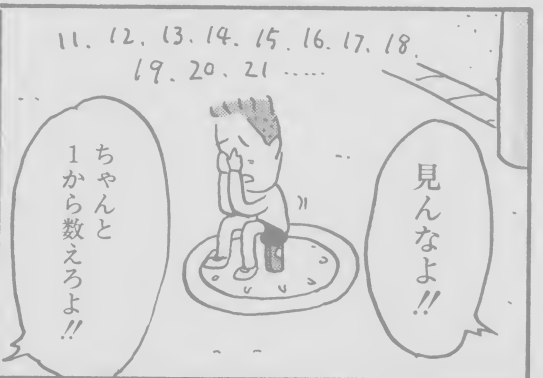 11、12、13、14、15、16、17、18、
19、20、21……
見んなよ!!
ちゃんと
1から数えろよ!!